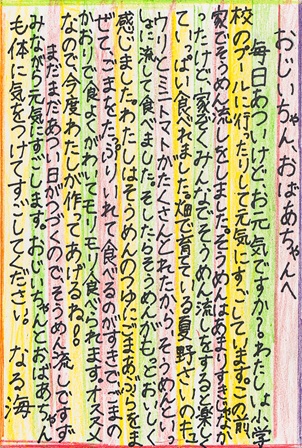 おじいちゃん、おばあちゃんへ
毎日あついけどお元気ですか?わたしは小学
校のプールに行ったりして元気にすごしています。この前
家でそうめん流しをしました。そうめんはあまりすきじゃなか
ったけど、家ぞくみんなでそうめん流しをすると楽しく
ていっぱい食べれました。畑で育ている夏野さいのキュ
ウリとミニトマトがたくさんとれたから、そうめんといっ
しょに流して食べました。そしたらそうめんがもっとおいしく
感じました。わたしはそうめんのつゆにごまあぶらをま
ぜて、ごまをたっぷりいれて食べるのがすきで、ごまの
かおりで食よくがわいてモリモリ食べられます。オススメ
なので今度わたしが作ってあげるね!!
まだまだあつい日がつづくのでそうめん流しですず
みながら元気にすごします。おじいちゃんとおばあちゃん
も体に気をつけてすごしてください。 なる海